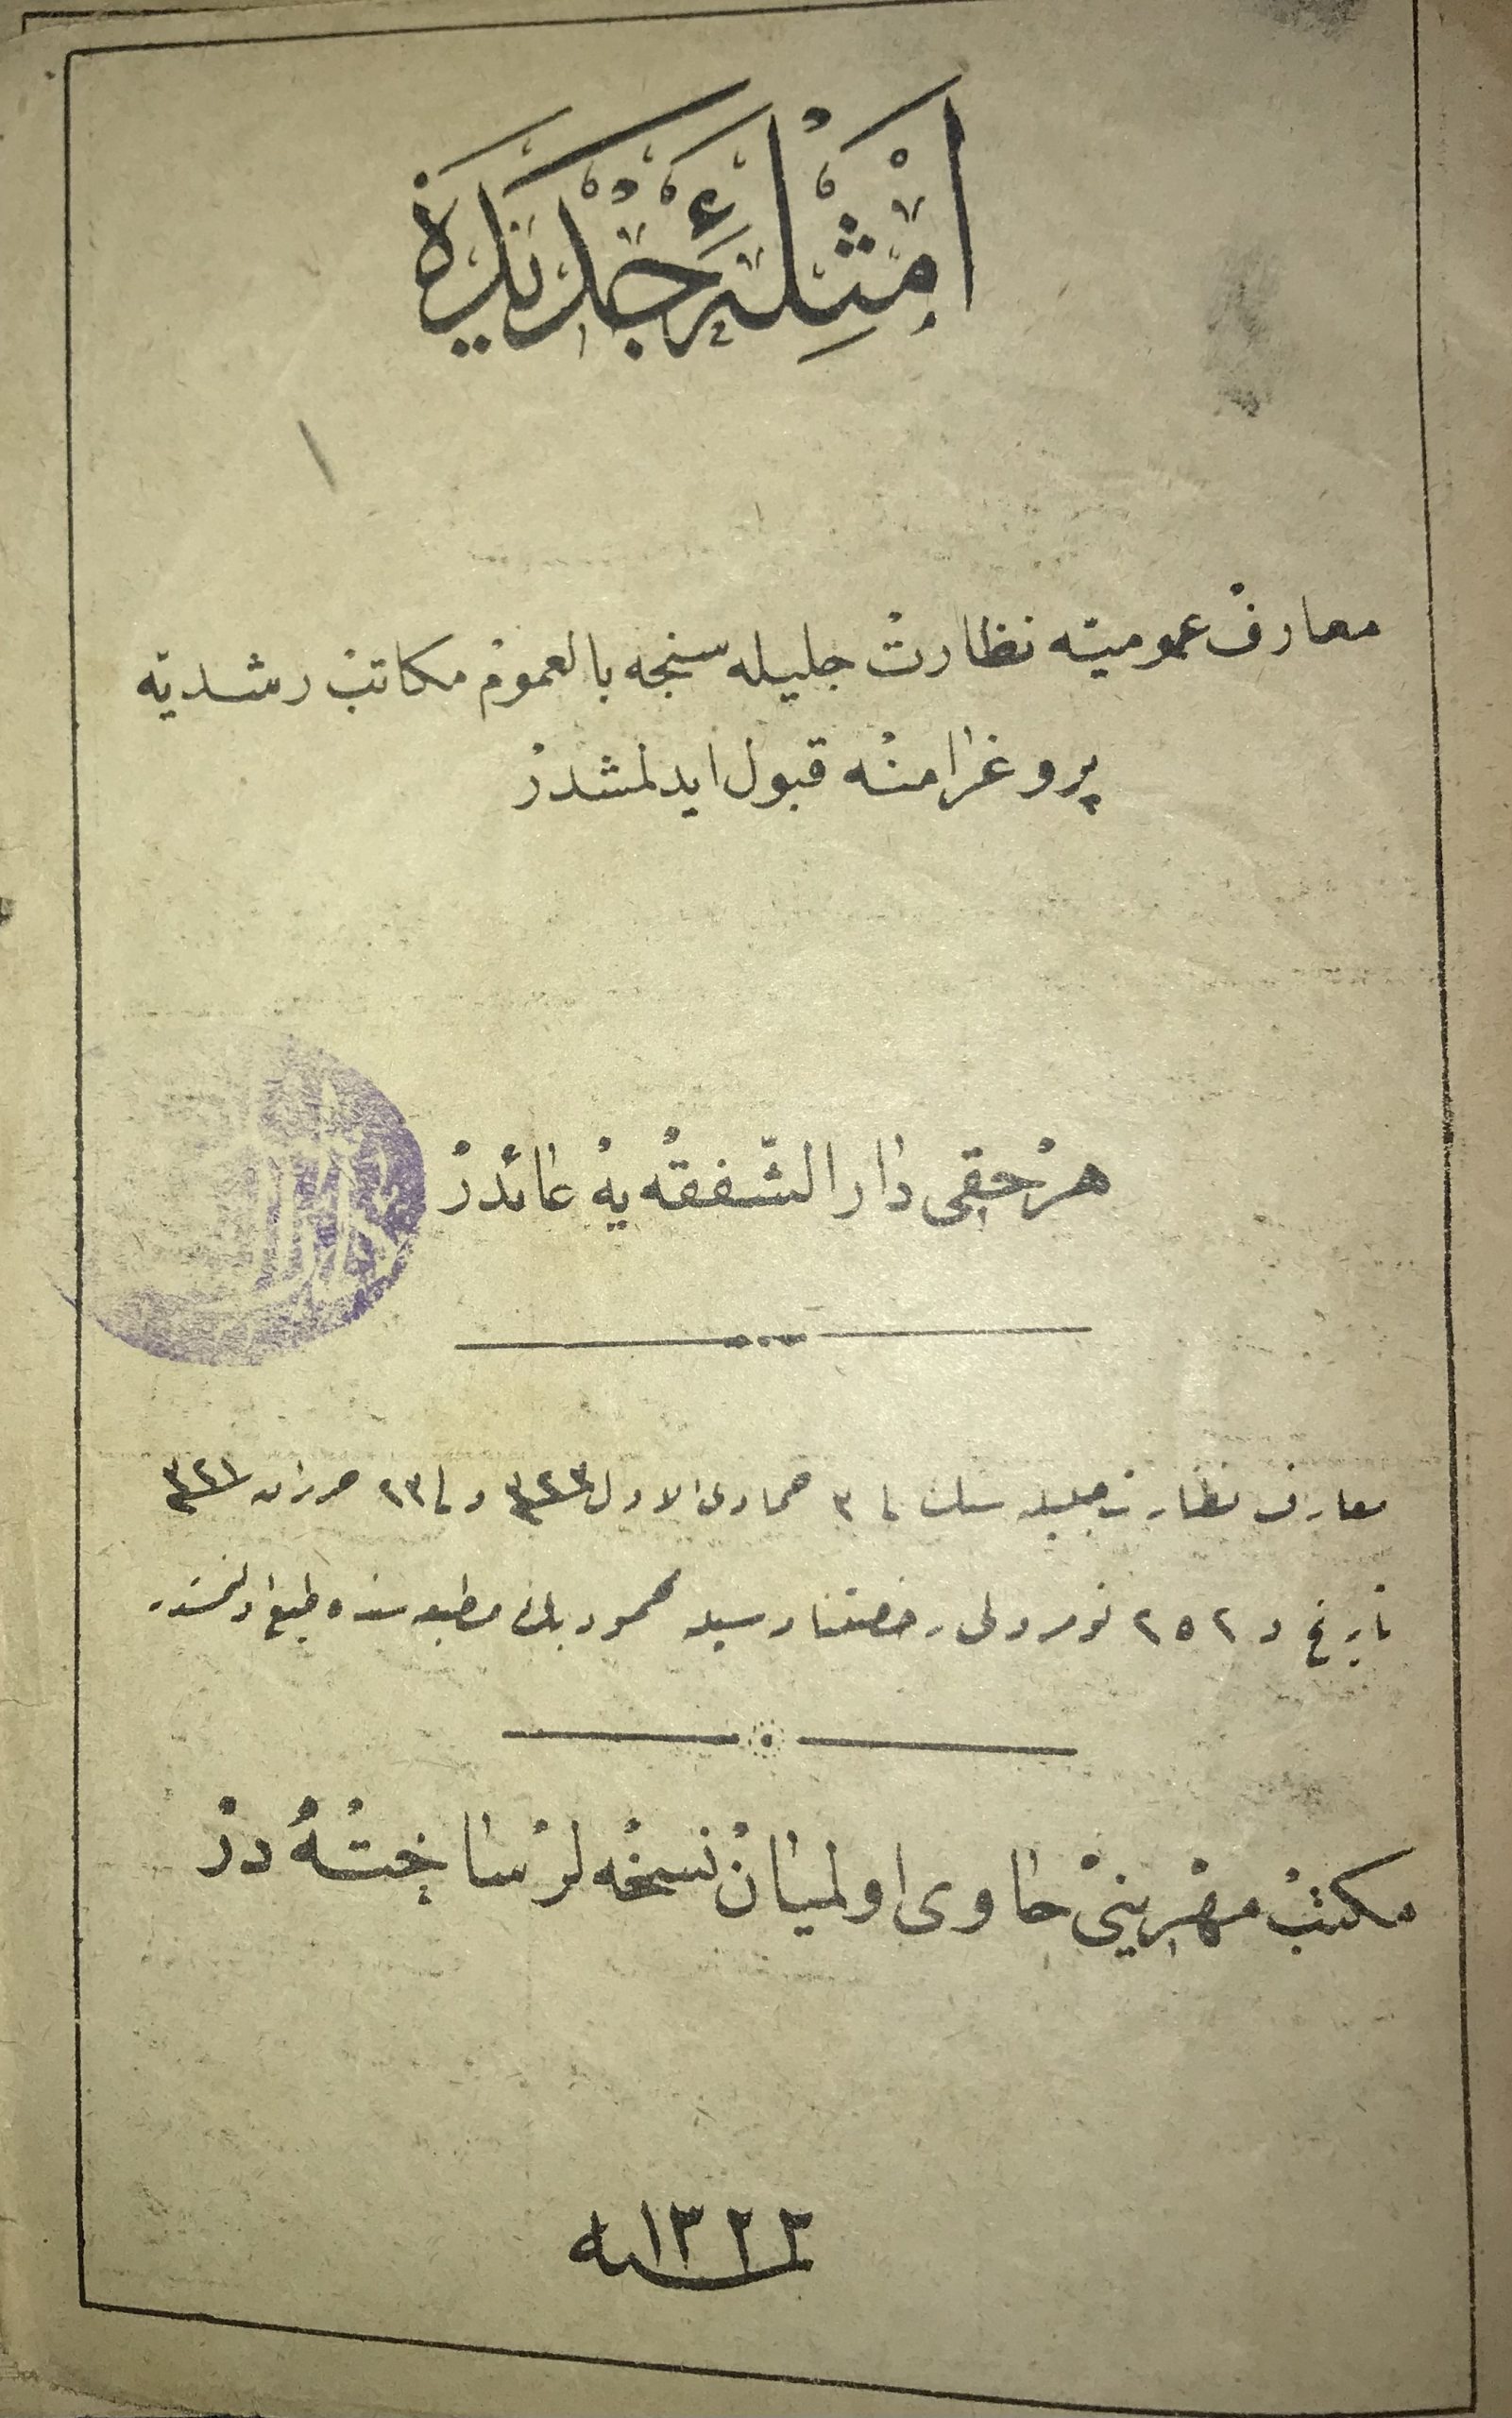 امثلهٔ جدیده
معارف عمومیه نظارت جلیله سنجه بالعموم مکاتب رشدیه
پروغرامنه قبول ایدلمشدر
هر حقی دار الشّفقه یه عائددر
معارف نظارت جلیله سنك فی ٣ جمادی الاول ٣٢٣ و فی ٢٣ حزیران ٣٢١
تاریخ و ٢٥٢ نومرولی رخصتنامه سیله محمود بك مطبعه سنده طبع اولنمشدر
مکتب مهرینی حاوی اولمیان نسخه لر ساخته در
سنه ١٣٢٣